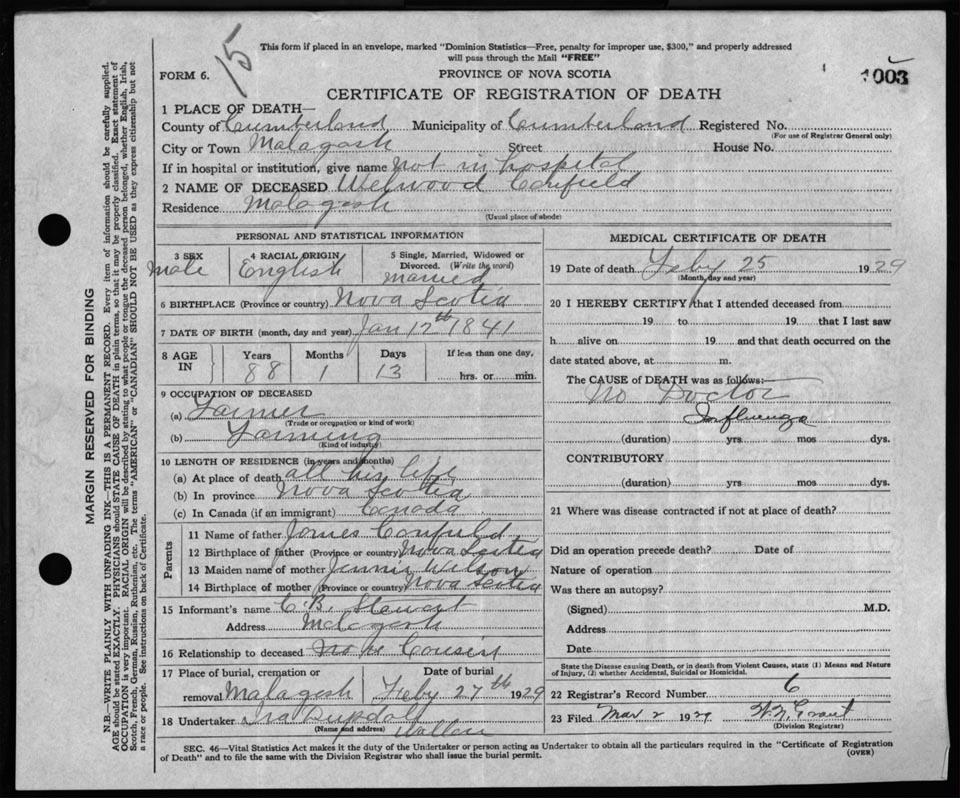 15
This form if placed in an envelope, marked "Dominion Statistics—Free, penalty for improper use, $300," and properly addressed
will pass through the Mail "FREE"
FORM 6.
PROVINCE OF NOVA SCOTIA
1003
CERTIFICATE OF REGISTRATION OF DEATH
1 PLACE OF DEATH—
County of Cumberland Municipality of Cumberland Registered No.
(For use of Registrar General only)
City or Town Malagash Street House No.
If in hospital or institution, give name not in hospital
2 NAME OF DECEASED Welwood Canfield
Residence Malagash
(Usual place of abode)
PERSONAL AND STATISTICAL INFORMATION
3 SEX 4 RACIAL ORIGIN 5 Single, Married, Widowed or
Divorced. (Write the word)
Male English married
6 BIRTHPLACE (Province or country) Nova Scotia
7 DATE OF BIRTH (month, day and year) Jan 12th 1841
8 AGE IN Years Months Days If less than one day,
88 1 13 hrs. or min.
9 OCCUPATION OF DECEASED
(a) Farmer
(Trade or occupation or kind of work)
(b) Farming
(Kind of industry)
10 LENGTH OF RESIDENCE (in years and months)
(a) At place of death all his life
(b) In province Nova Scotia
(c) In Canada (if an immigrant) Canada
Parents
11 Name of father James Canfield
12 Birthplace of father (Province or country) Nova Scotia
13 Maiden name of mother Jennie Wilson
14 Birthplace of mother (Province or country) Nova Scotia
15 Informant's name C. B. Stewart
Address Malagash
16 Relationship to deceased Cousin
17 Place of burial, cremation or Date of burial
removal Malagash Feby 27th 1929
18 Undertaker Ira
(Name and address) Wallace
MEDICAL CERTIFICATE OF DEATH
19 Date of death Feby 25 1929
(Month, day and year)
20 I HEREBY CERTIFY that I attended deceased from
19 to 19 that I last saw
h alive on 19 and that death occurred on the
date stated above, at m.
The CAUSE of DEATH was as follows:—
No Doctor
Influenza
(duration) yrs. mos dys.
CONTRIBUTORY
(duration) yrs. mos dys.
21 Where was disease contracted if not at place of death?
Did an operation precede death? Date of
Nature of operation
Was there an autopsy?
(Signed) M.D.
Address
Date
State the Disease causing Death, or in death from Violent Causes, state (1) Means and Nature
of Injury, (2) whether Accidental, Suicidal or Homicidal.
22 Registrar's Record Number 6
23 Filed Mar 2 1929 Grant
(Division Registrar)
SEC. 46—Vital Statistics Act makes it the duty of the Undertaker or person acting as Undertaker to obtain all the particulars required in the "Certificate of Registration
of Death" and to file the same with the Division Registrar who shall issue the burial permit.
(OVER)
MARGIN RESERVED FOR BINDING
N.B.—WRITE PLAINLY WITH UNFADING INK—THIS IS A PERMANENT RECORD. Every item of information should be carefully supplied.
AGE should be stated EXACTLY. PHYSICIANS should STATE CAUSE OF DEATH in plain terms, so that it may be properly classified. Exact statement of
OCCUPATION is very important. RACIAL ORIGIN will be described by stating to what people or tongue the deceased person belonged, whether English, Irish,
Scotch, French, German, Russian, Ruthenian, etc. The terms "AMERICAN" or "CANADIAN" SHOULD NOT BE USED as they express citizenship but not
a race or people. See instructions on back of Certificate.